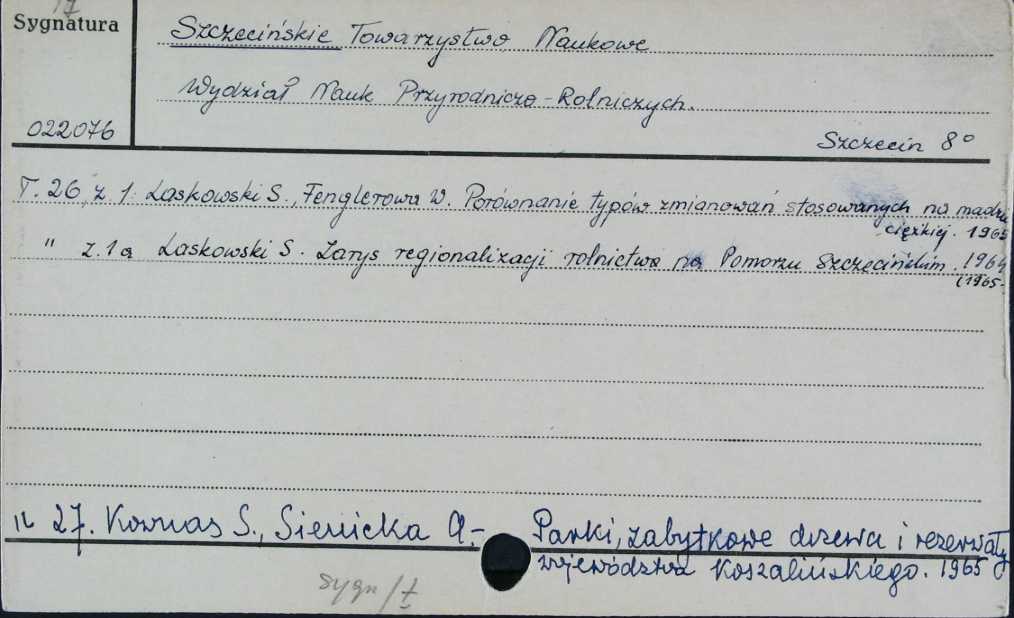 17
Sygnatura
Szczecińskie Towarzystwo Naukowe
Wydział Nauk Przyrodniczo-Rolniczych.
022076
Szczecin 8°
T. 26, z 1. Laskowski S., Fenglerowa W. Porównanie typów zmianowań stosowanych na madzie
ciężkiej. 1965
" z. 1a Laskowski S. Zarys regionalizacji rolnictwa na Pomorzu Szczecińskim. 1964
(1965.
" 27. Kownas S., Sienicka A.- Parki, zabytkowe drzewa i rezerwaty
województwa Koszalińskiego. 1965
sygn/t